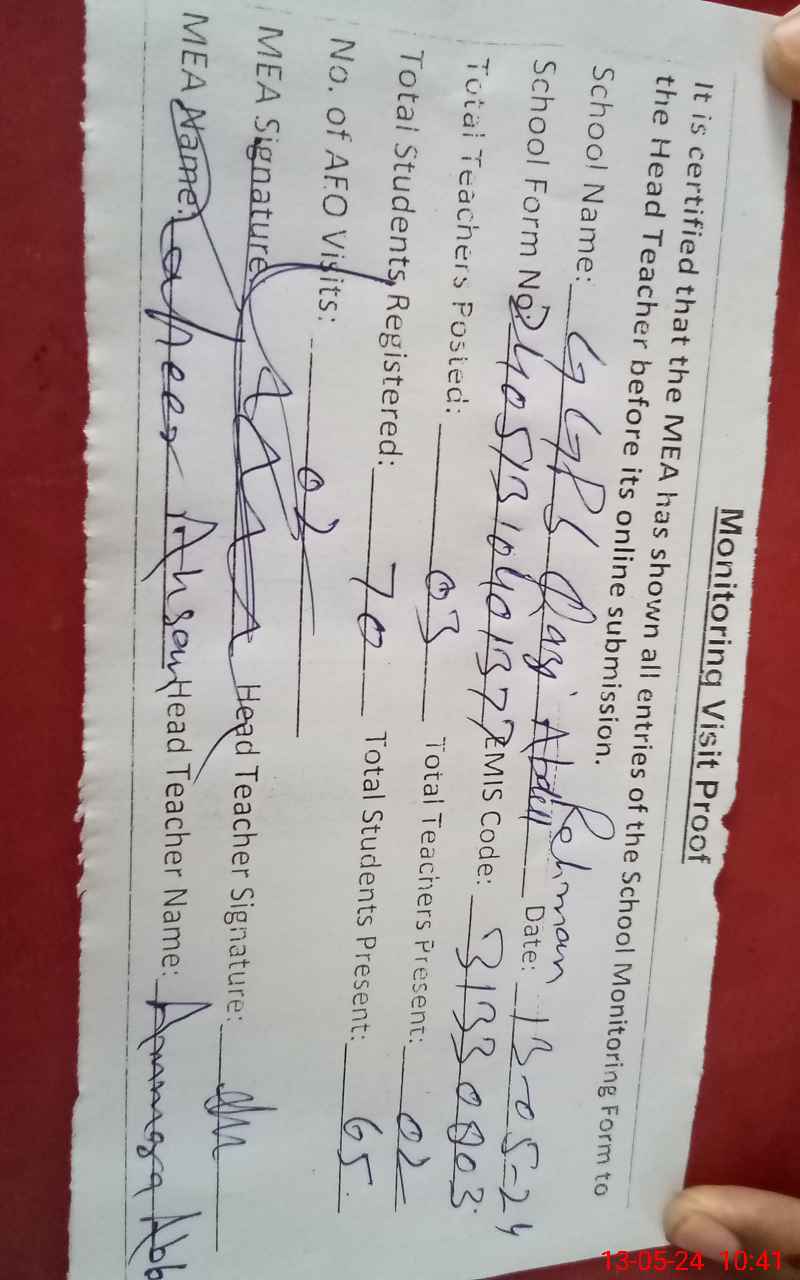 Monitoring Visit Proof
It is certified that the MEA has shown all entries of the School Monitoring Form to
the Head Teacher before its online submission.
School Name: GGPS Qazi Abdul Rehman Date: 13-05-24
School Form No: EMIS Code: 31330003
Total Teachers Posted: 03 Total Teachers Present: 02
Total Students Registered: 70 Total Students Present: 65
No. of AEO Visits: 02
MEA Signature Head Teacher Signature:
MEA Name: Ahsan Head Teacher Name: Ammara Abb
13-05-24 10:41